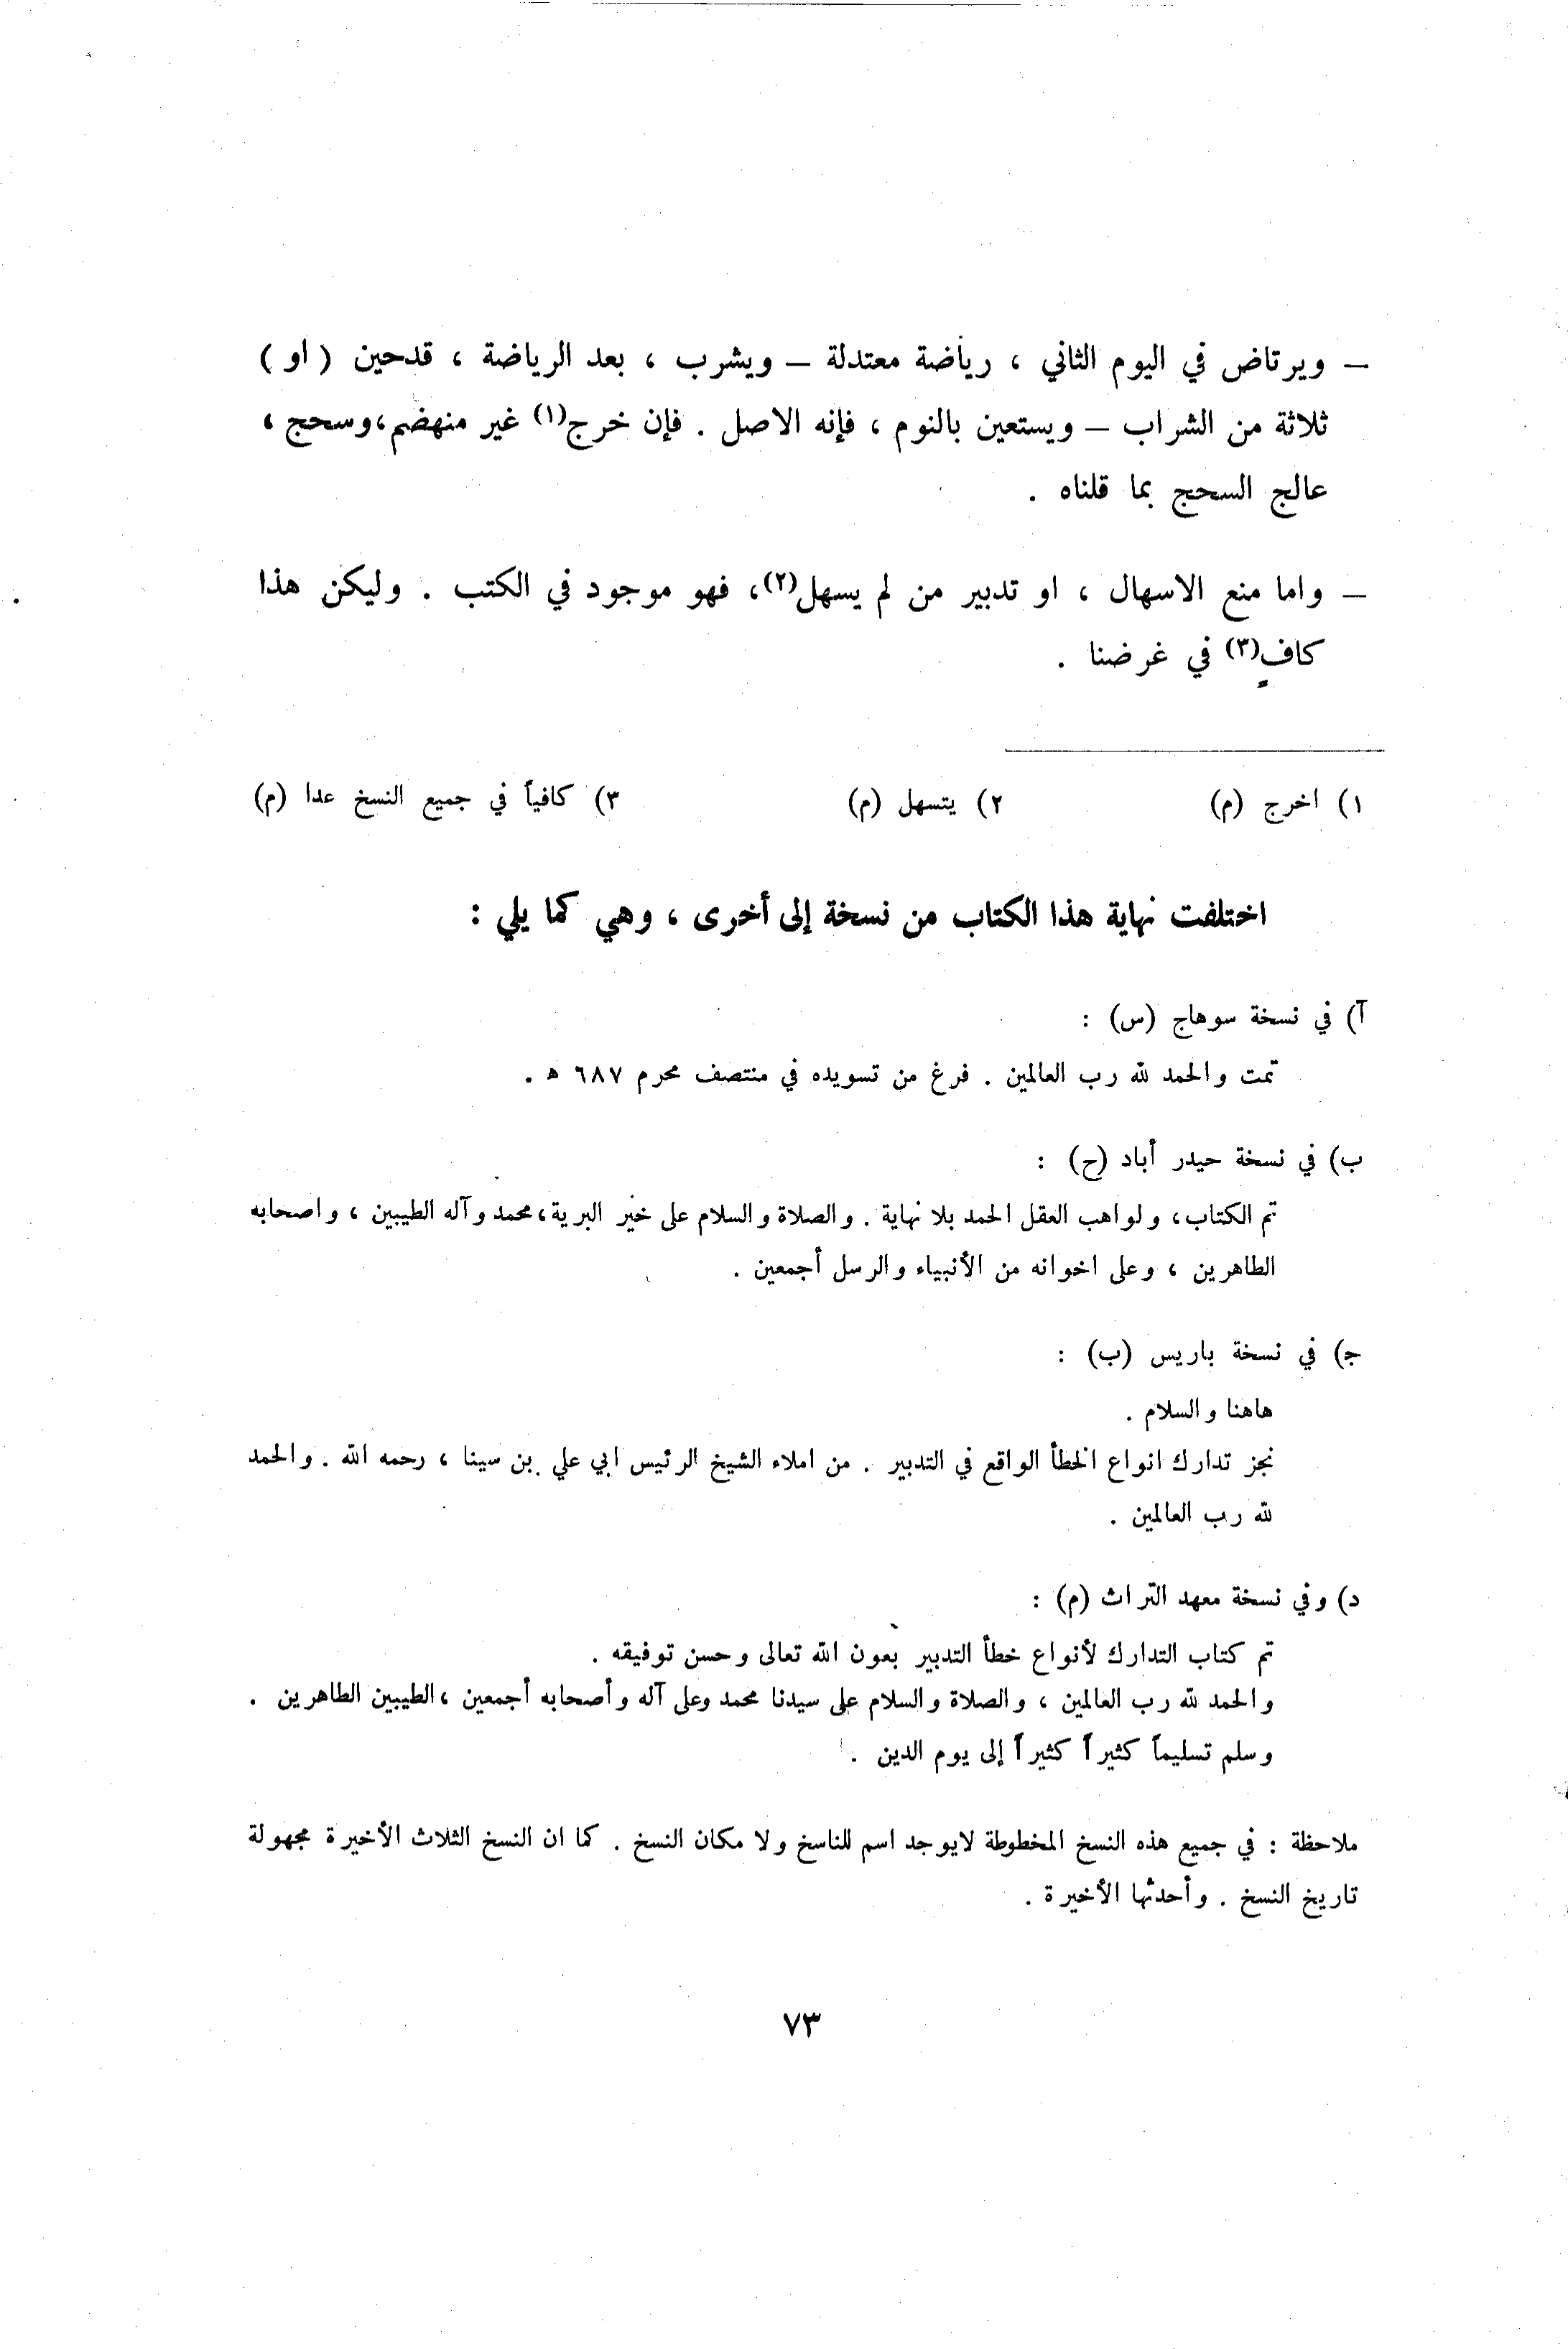 – ويرتاض في اليوم الثاني ، رياضة معتدلة – ويشرب ، بعد الرياضة ، قدحين ( او )
ثلاثة من الشراب – ويستعين بالنوم ، فإنه الاصل . فإن خرج(١) غير منهضم،وسحج ،
عالج السحج بما قلناه .
– واما منع الاسهال ، او تدبير من لم يسهل(٢)، فهو موجود في الكتب . وليكن هذا
كافٍ(٣) في غرضنا .
١) اخرج (م) ٢) يتسهل (م) ٣) كافياً في جميع النسخ عدا (م)
اختلفت نهاية هذا الكتاب من نسخة إلى أخرى ، وهي كما يلي :
آ) في نسخة سوهاج (س) :
تمت والحمد لله رب العالمين . فرغ من تسويده في منتصف محرم ٦٨٧ ه .
ب) في نسخة حيدر أباد (ح) :
تم الكتاب، ولواهب العقل الحمد بلا نهاية . والصلاة والسلام على خير البرية،محمد وآله الطيبين ، واصحابه
الطاهرين ، وعلى اخوانه من الأنبياء والرسل أجمعين .
ج) في نسخة باريس (ب) :
هاهنا والسلام .
نجز تدارك انواع الخطأ الواقع في التدبير . من املاء الشيخ الرئيس ابي علي بن سينا ، رحمه الله . والحمد
لله رب العالمين .
د) وفي نسخة معهد التراث (م) :
تم كتاب التدارك لأنواع خطأ التدبير بعون الله تعالى وحسن توفيقه .
والحمد لله رب العالمين ، والصلاة والسلام على سيدنا محمد وعلى آله وأصحابه أجمعين ،الطيبين الطاهرين .
وسلم تسليماً كثيراً كثيراً إلى يوم الدين .
ملاحظة : في جميع هذه النسخ المخطوطة لايوجد اسم للناسخ ولا مكان النسخ . كما ان النسخ الثلاث الأخيرة مجهولة
تاريخ النسخ . وأحدثها الأخيرة .
٧٣